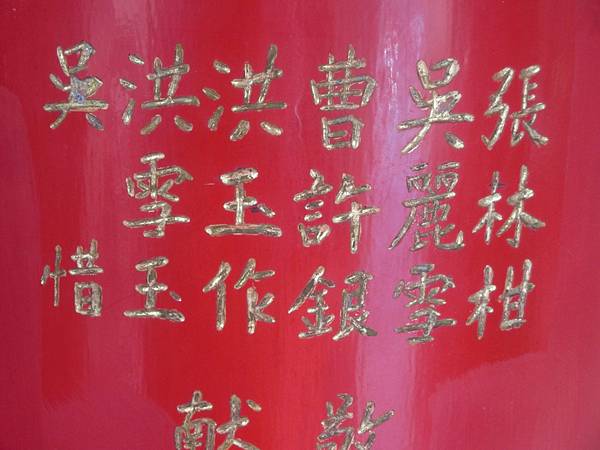 張林柑
吳麗雪
曹許銀
洪玉作
洪雪玉
吳惜
敬獻